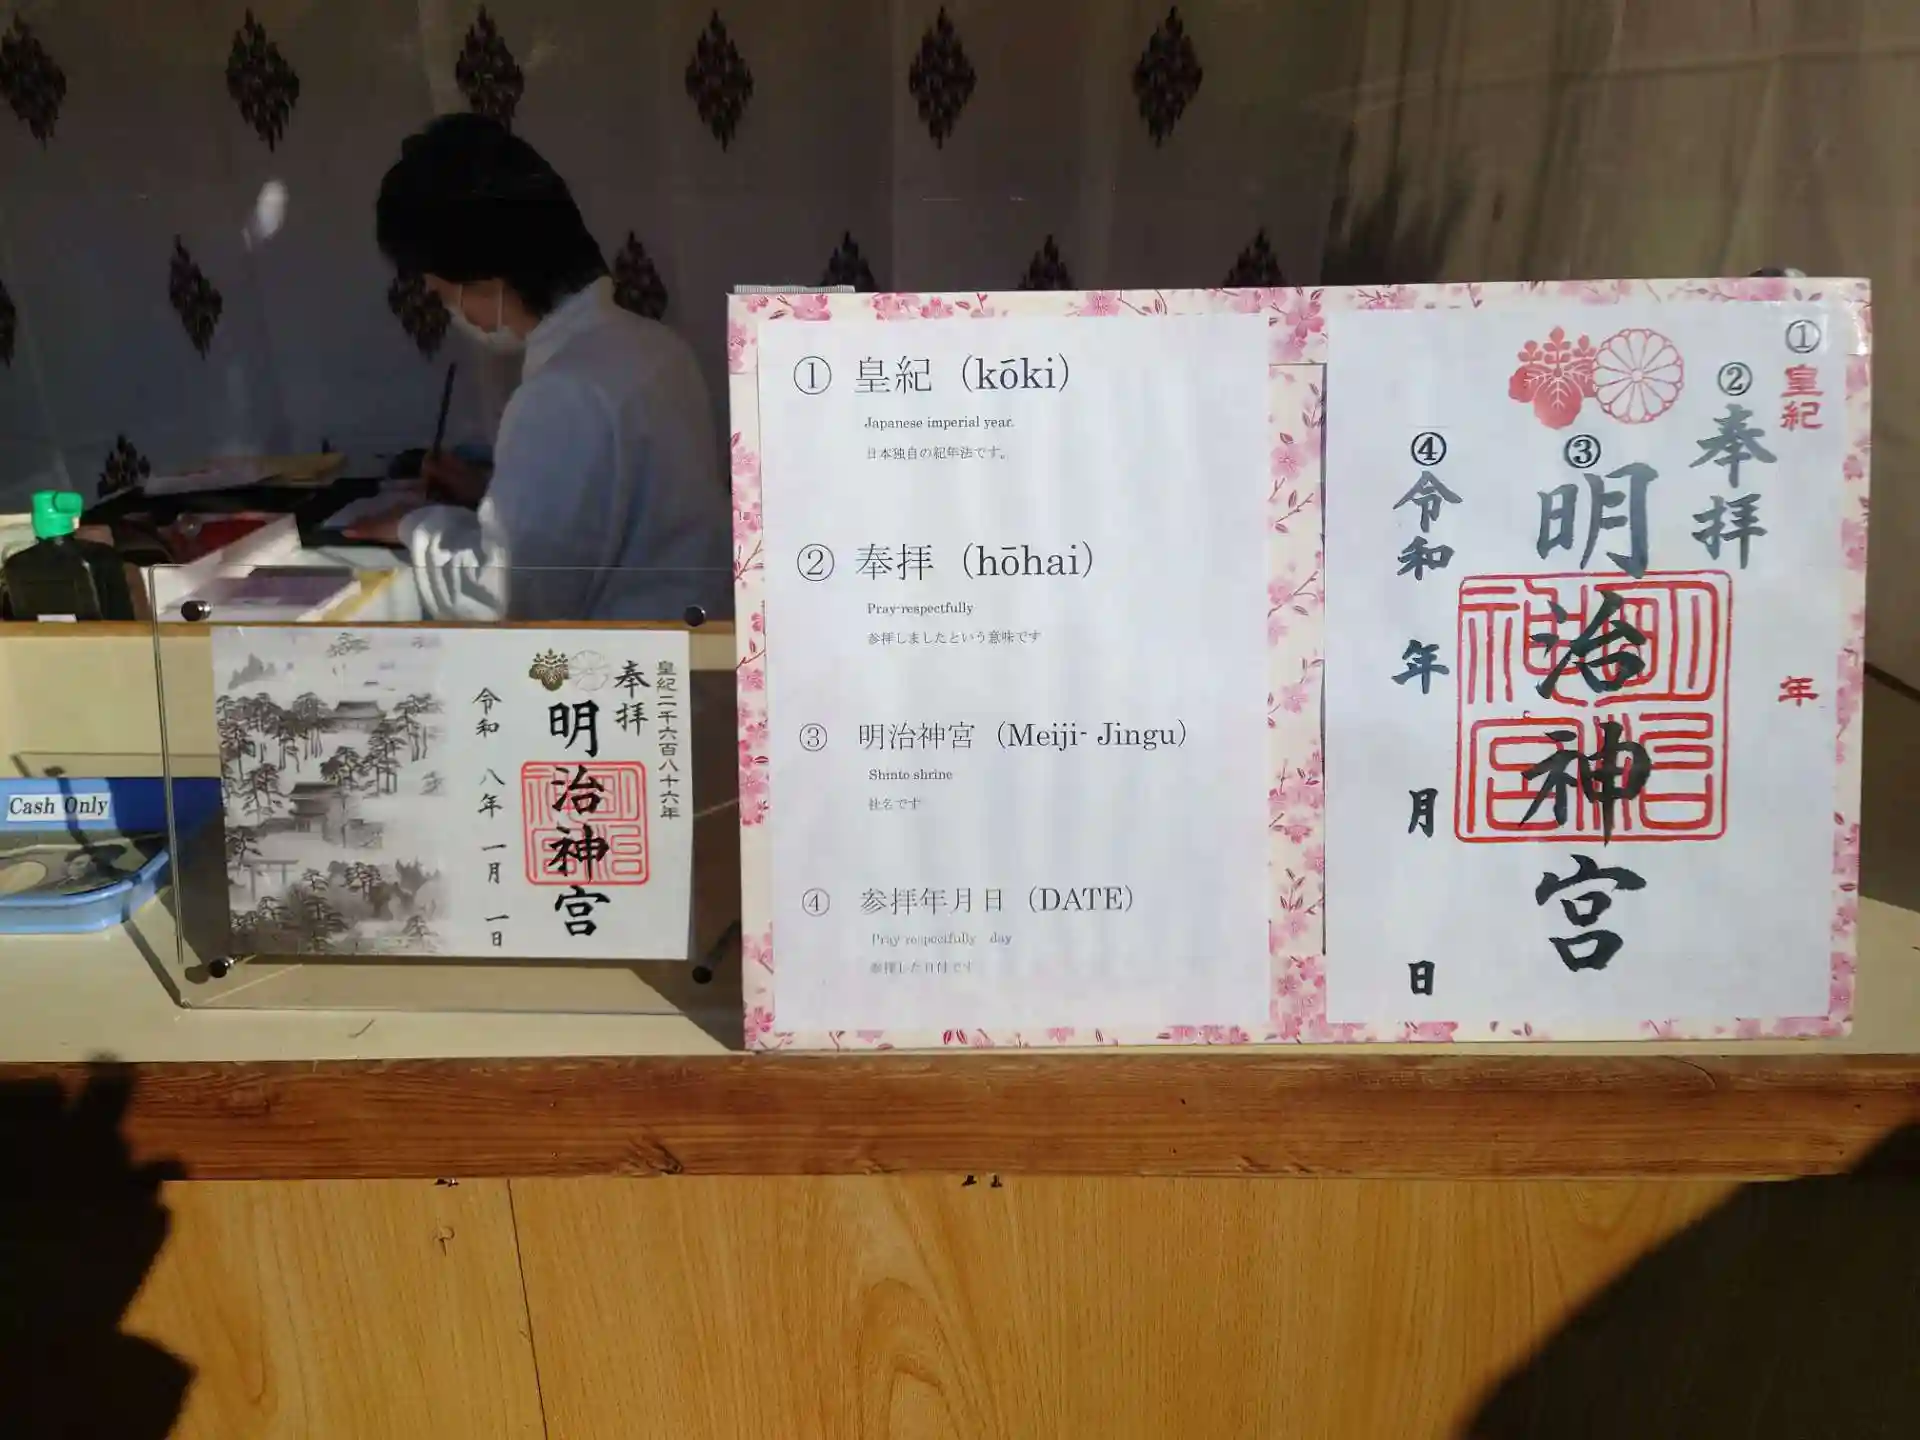 Cash Only
皇紀二千六百八十六年
奉拝
明治神宮
令和 八年 一月 一日
① 皇紀（kōki）
Japanese imperial year.
日本独自の紀年法です。
② 奉拝（hōhai）
Pray-respectfully
参拝しましたという意味です
③ 明治神宮（Meiji- Jingu）
Shinto shrine
社名です
④ 参拝年月日（DATE）
Pray respectfully day
参拝した日付です
① 皇紀 年
② 奉拝
③ 明治神宮
④ 令和 年 月 日
明治神宮